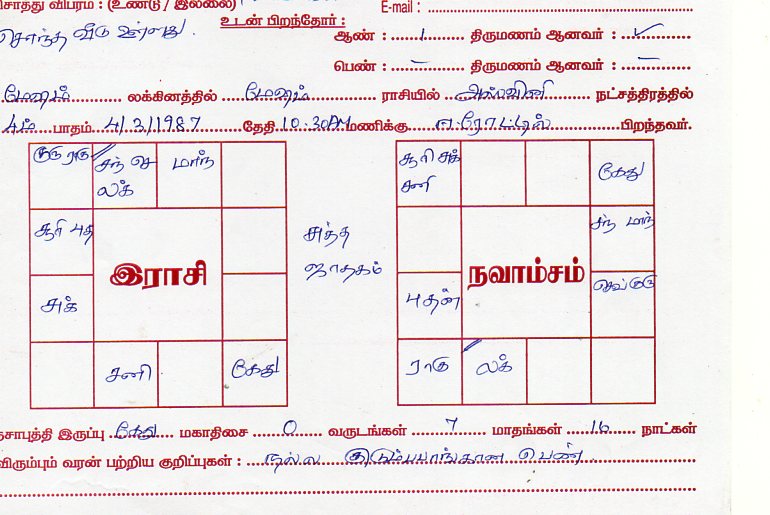 சொத்து விபரம் : (உண்டு / இல்லை) E-mail :
சொந்த வீடு உள்ளது உடன் பிறந்தோர் :
ஆண் : 1 திருமணம் ஆனவர் : ✓
பெண் : – திருமணம் ஆனவர் : –
மேஷம் லக்கினத்தில் மேஷம் ராசியில் அஸ்வினி நட்சத்திரத்தில்
4ம் பாதம் 4/3/1987 தேதி 10.30AM மணிக்கு ஈரோட்டில் பிறந்தவர்.
குரு ராகு சந் செ மாந்
லக்
சூரி புத
இராசி
சுக்
சனி கேது
சுத்த
ஜாதகம்
சூரி சுக் கேது
சனி
சந் மாந்
நவாம்சம்
புதன் செவ் குரு
ராகு லக்
தசாபுத்தி இருப்பு கேது மகாதிசை 0 வருடங்கள் 7 மாதங்கள் 16 நாட்கள்
விரும்பும் வரன் பற்றிய குறிப்புகள் : நல்ல குடும்பபாங்கான பெண்